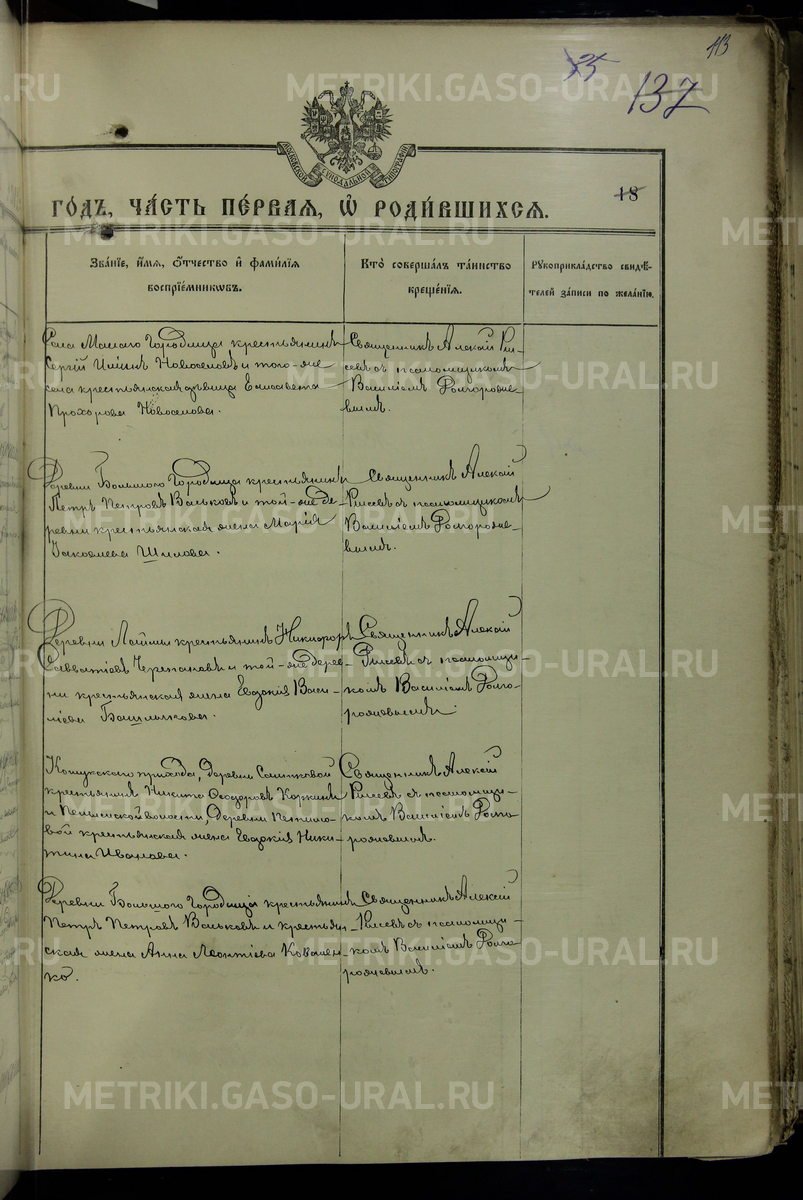 113
35
137
МОСКОВСКОЙ СѴНОДАЛЬНОЙ ТИПОГРАФІИ
18
ГО́ДЪ, ЧА́СТЬ ПЕ́РВАЯ, Ѡ҆ РОДИ́ВШИХСЯ.
Зва́нїе, и҆́мя, ѻ҆́тчество и҆ фами́лїя
воспрїе́мникѡвъ.
Кто̀ соверша́лъ та́инство
креще́нїя.
Рꙋкоприкла́дство свидѣ́-
телей за́писи по жела́нїю.
Села Малаго Городища крестьянинъ
Сергій Новоселовъ и того-же
села крестьянская дѣвица Елисавета
Прохорова Новоселова.
Священникъ Алексій
съ псаломщикомъ
Василіемъ
вымъ.
Деревни Большого Городища крестьянинъ
Петръ Петровъ Вальковъ и той-же де-
ревни крестьянская жена Марія
Іаковлева Шилова.
Священникъ Алексій
съ псаломщикомъ
Василіемъ
вымъ.
Деревни крестьянинъ Никифоръ
Савватіевъ Черепановъ и той-же дерев-
ни крестьянская жена Евдокія Васи-
ліева
Священникъ Алексій
съ псаломщи-
комъ Василіемъ
Кошукскаго прихода, деревни
крестьянинъ Никита Ѳеодоровъ Коркинъ
и волости, деревни
вой крестьянская жена Евдокія Ники-
тина Иванова.
Священникъ Алексій
съ псаломщи-
комъ Василіемъ
Деревни Большого Городища крестьянинъ
Петръ Петровъ Вальковъ и крестьян-
ская жена Анна Леонтіева Ковален-
ко.
Священникъ Алексій
съ псаломщи-
комъ Василіемъ
METRIKI.GASO-URAL.RU